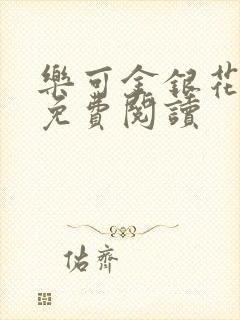 樂可金銀花
免費閱讀
佑齊